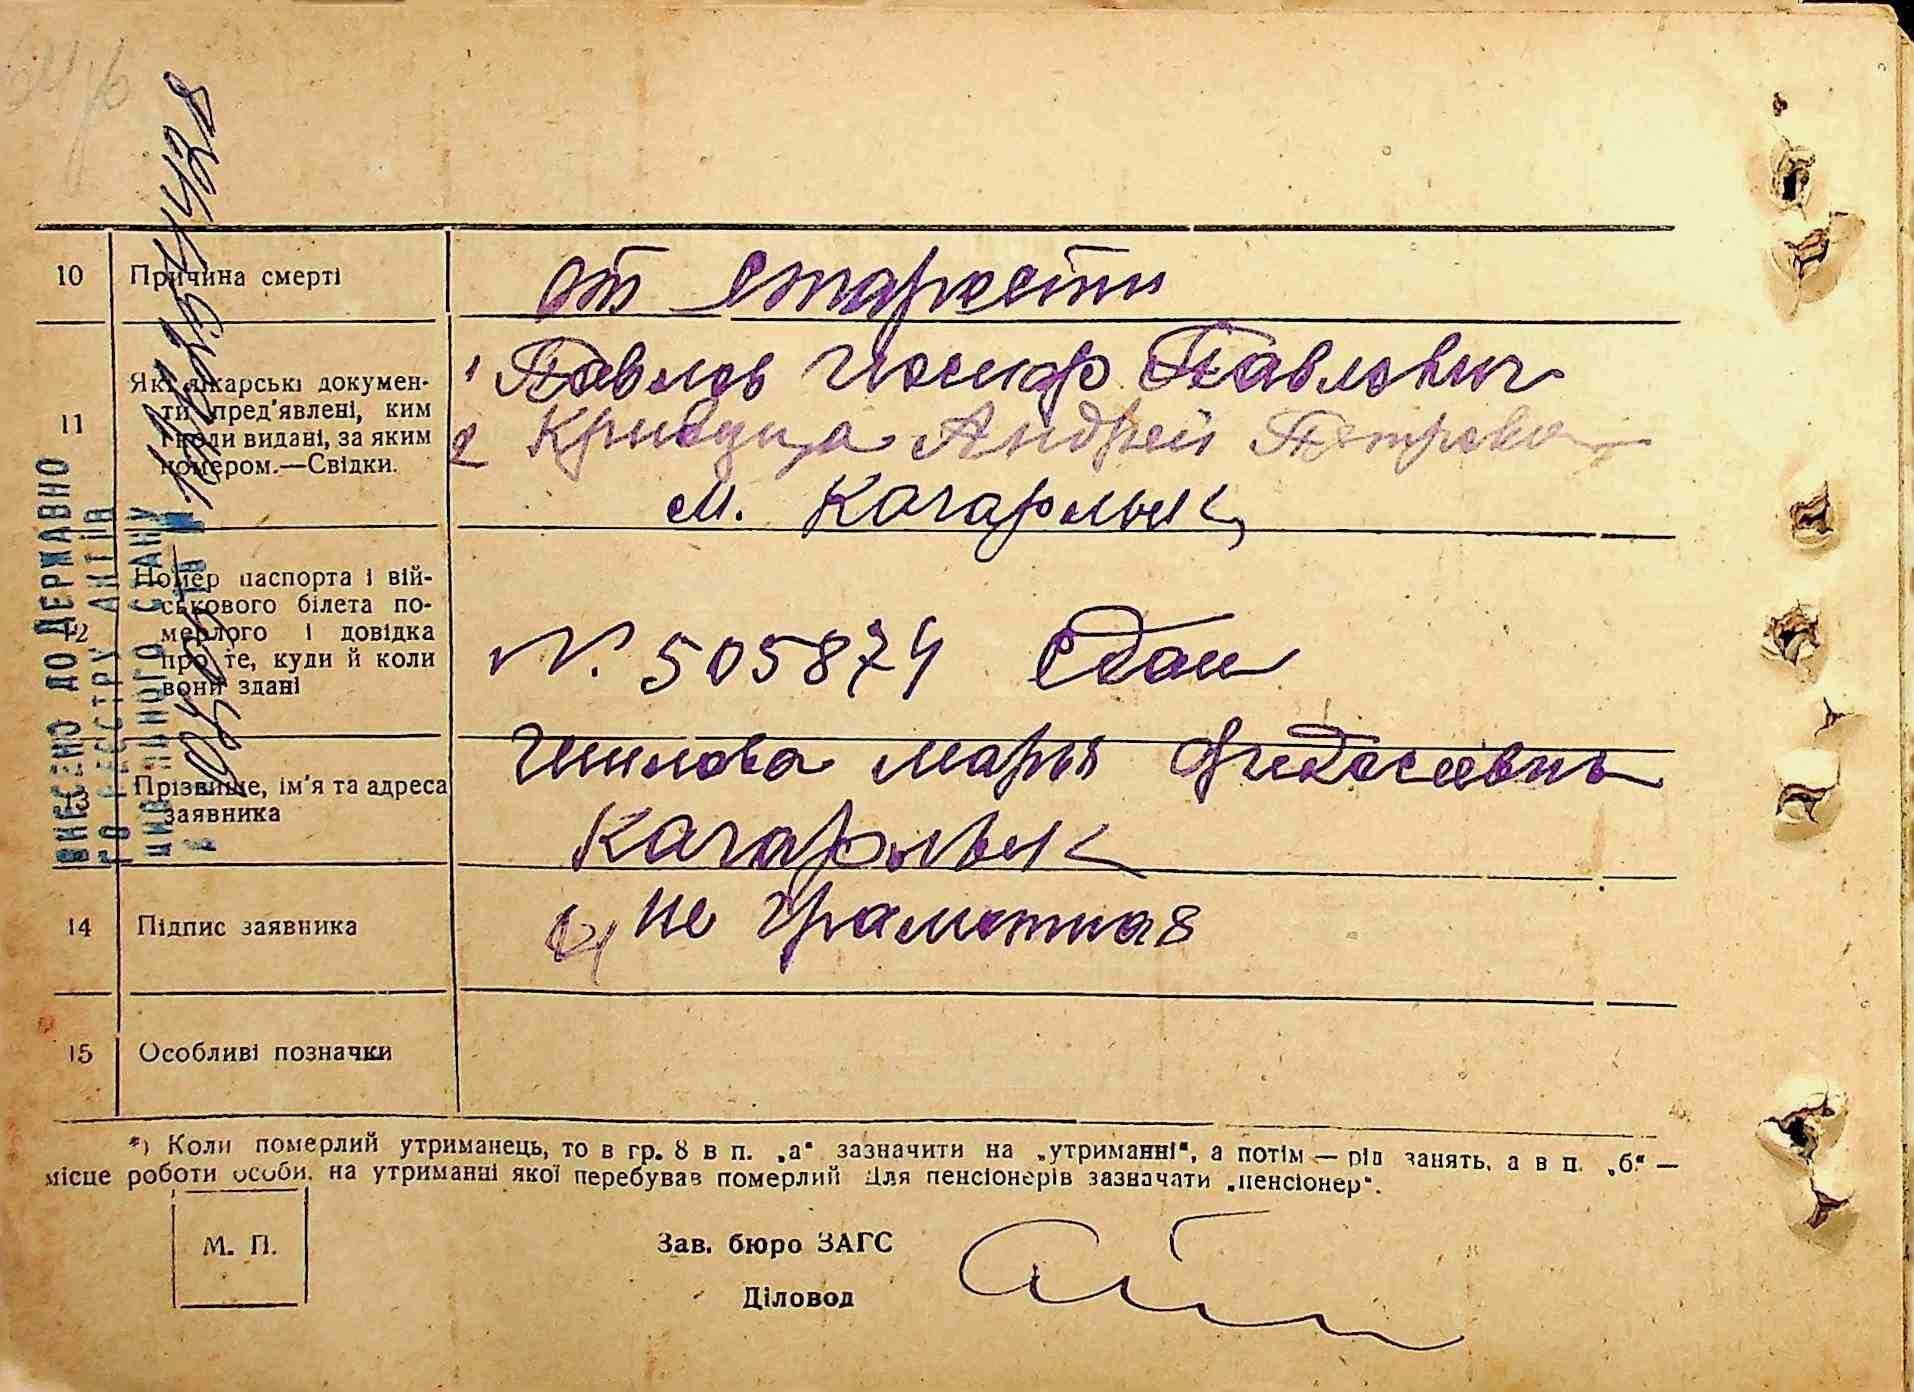 10 Причина смерті
от старости
11 Які лікарські докумен-
ти пред'явлені, ким
і коли видані, за яким
номером.—Свідки.
1 Павлов Иосиф Павлович
2 Кривуца Андрей Петрович
м. Кагарлык
12 Номер паспорта і вій-
ськового білета по-
мерлого і довідка
про те, куди й коли
вони здані
N. 505874 сдан
13 Прізвище, ім'я та адреса
заявника
Шилова Марья
Кагарлык
14 Підпис заявника
не грамотная
15 Особливі позначки
*) Коли померлий утриманець, то в гр. 8 в п. „а“ зазначити на „утриманні“, а потім — рід занять, а в п. „б“ —
місце роботи особи, на утриманні якої перебував померлий Для пенсіонерів зазначати „пенсіонер“.
М. П.
Зав. бюро ЗАГС
Діловод
ВНЕСЕНО ДО ДЕРЖАВНО
ГО РЕЄСТРУ АКТІВ
ЦИВІЛЬНОГО СТАНУ